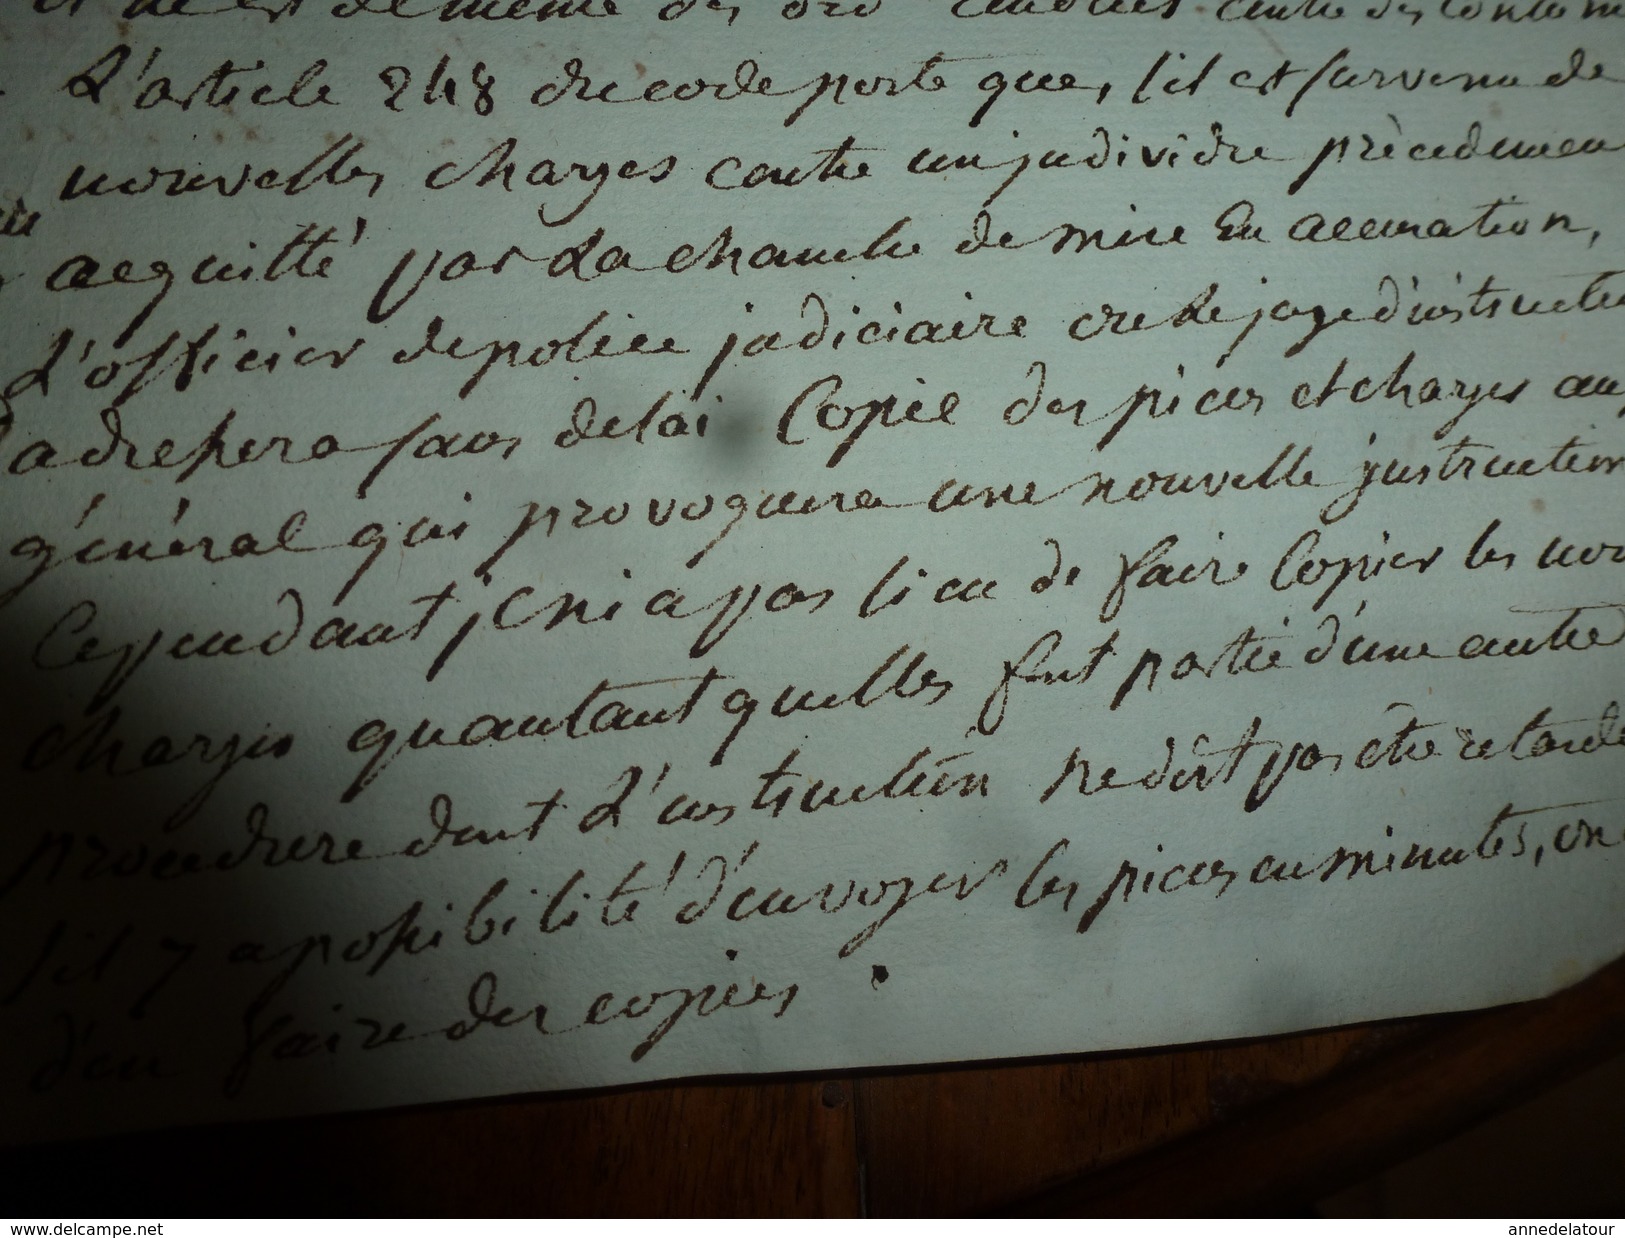 et il en est de même des ord rendues contre des contum
L'article 248 du code porte que, s'il est survenu de
nouvelles charges contre un judividu précedemen
acquitté par La chambre de mise En accusation,
L'officier de police judiciaire ou Le juge d'instructi
adressera sans delai Copie des pieces et charges au
général qui provoquera une nouvelle justruction
Cependant il ni a pas lieu de faire Copier les nou
charges quautant quelles font partie d'une autre
procedure dont L'instruction ne doit pas être retardé
s'il y a possibilité d'envoyer les pieces en minutes, on
d'en faire des copies.
www.delcampe.net
annedelatour